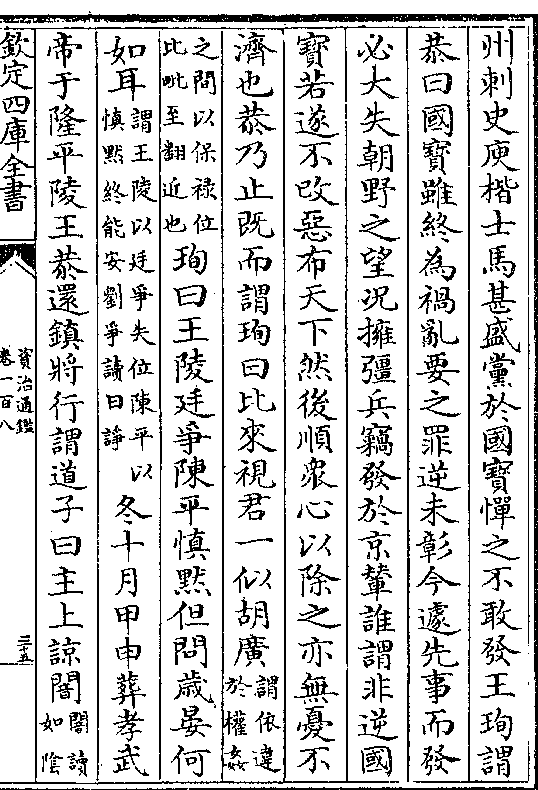 州刺史庾楷士馬甚盛黨於國寶憚之不敢發王珣謂
恭曰國寶雖終為禍亂要之罪逆未彰今遽先事而發
必大失朝野之望況擁彊兵竊發於京輦誰謂非逆國
寶若遂不改惡布天下然後順衆心以除之亦無憂不
濟也恭乃止既而謂珣曰比來視君一似胡廣謂依違於權姦
之間以保禄位比毗至翻近也珣曰王陵廷爭陳平慎默但問歲晏何
如耳謂王陵以廷爭失位陳平以慎黙終能安劉爭讀曰諍冬十月甲申葬孝武
帝于隆平陵王恭還鎮將行謂道子曰主上諒闇闇讀如陰
欽定四庫全書
資治通鑑
卷一百八
三十五